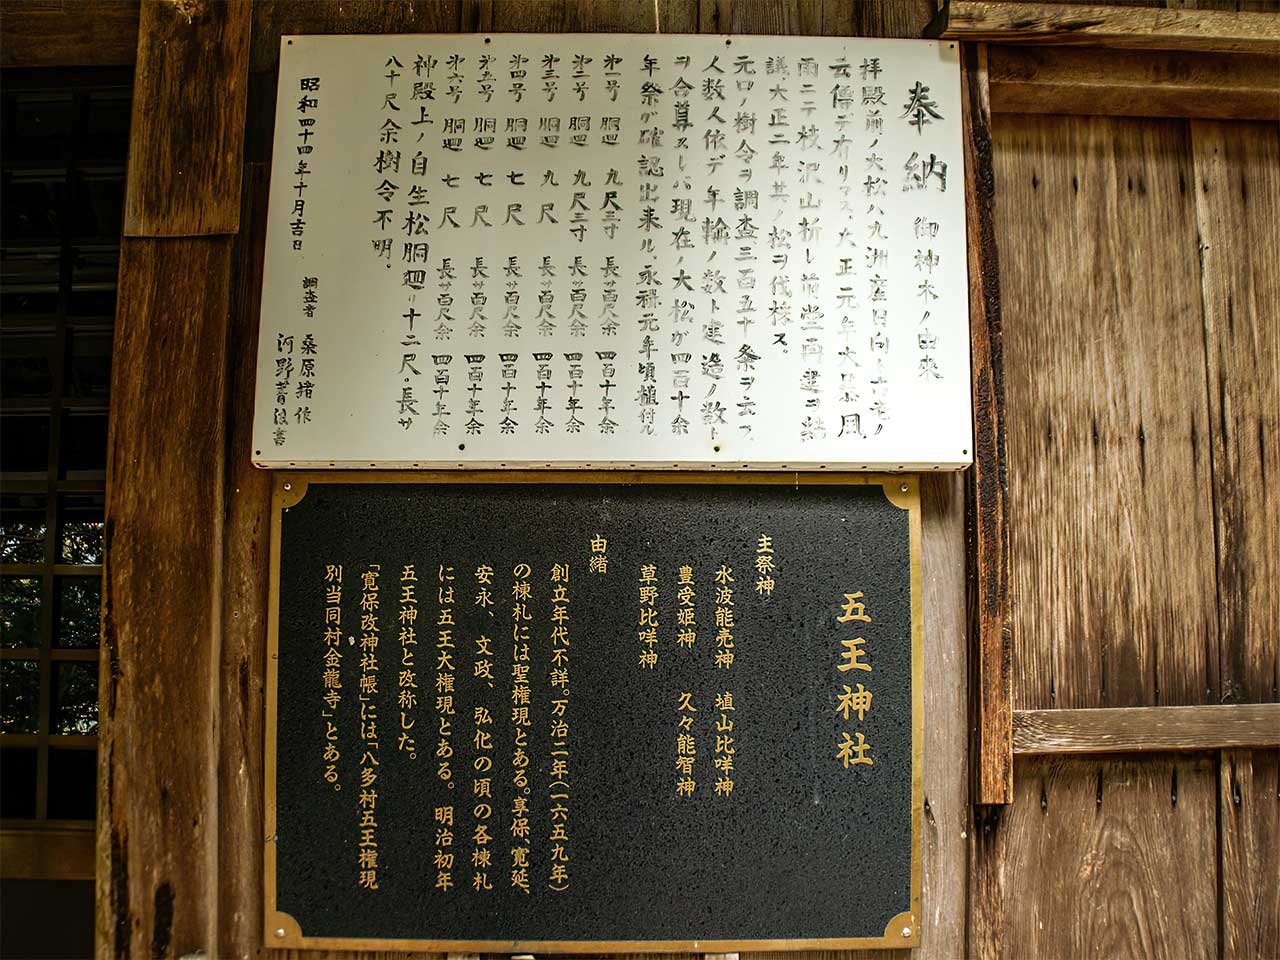 奉納 御神木ノ由來
拝殿前ノ大松ハ九洲産日向ト
云僧デ有リマス、大正元年大暴風
雨ニテ枝沢山折レ前堂再建ヲ結
議、大正二年其ノ松ヲ伐採ス。
元口ノ樹令ヲ調査三百五十条ヲ云フ
人数人依デ年輪ノ数ト建造ノ数ト
ヲ合算スレバ現在ノ大松が四百十余
年祭グ確認出来ル、永禄元年頃植付ル
㐧一号 胴廻 九尺三寸 長サ百尺余 四百十年余
㐧二号 胴廻 九尺三寸 長サ百尺余 四百十年余
㐧三号 胴廻 九尺 長サ百尺余 四百十年余
㐧四号 胴廻 七尺 長サ百尺余 四百十年余
㐧五号 胴廻 七尺 長サ百尺余 四百十年余
㐧六号 胴廻 七尺 長サ百尺余 四百十年余
神殿上ノ自生松胴廻リ十二尺。長サ
八十尺余樹令不明。
昭和四十四年十月吉日 調査者 桑原 作
河野 書
五王神社
主祭神
水波能売神 埴山比咩神
豊受姫神 久々能智神
草野比咩神
由緒
創立年代不詳。万治二年(一六五九年)
の棟札には聖権現とある。享保、寛延、
安永、文政、弘化の頃の各棟札
には五王大権現とある。明治初年
五王神社と改称した。
「寛保改神社帳」には「八多村五王権現
別当同村金龍寺」とある。